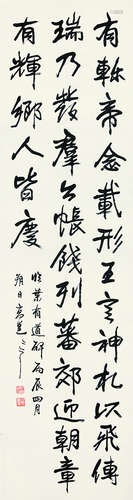 有軫帝念載形王言神札以飛傳
瑞乃發羣公帳餞列蕃郊迎朝章
有輝鄉人皆慶
臨葉有道碑丙辰四月
朔日高邕之